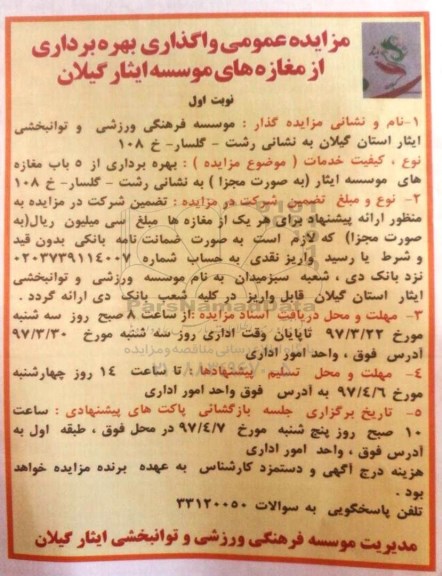 مزایده عمومی واگذاری بهره برداری
از مغازه های موسسه ایثار گیلان
نوبت اول
۱-نام و نشانی مزایده گذار : موسسه فرهنگی ورزشی و توانبخشی
ایثار استان گیلان به نشانی رشت - گلسار- خ ۱۰۸
نوع ، کیفیت خدمات ( موضوع مزایده ) : بهره برداری از ۵ باب مغازه
های موسسه ایثار (به صورت مجزا ) به نشانی رشت - گلسار- خ ۱۰۸
۲- نوع و مبلغ تضمین شرکت در مزایده : تضمین شرکت در مزایده به
منظور ارائه پیشنهاد برای هر یک از مغازه ها مبلغ سی میلیون ریال(به
صورت مجزا) که لازم است به صورت ضمانت نامه بانکی بدون قید
و شرط یا رسید واریز نقدی به حساب شماره ۰۲۰۳۷۳۹۱۱۴۰۰۷
نزد بانک دی ، شعبه سبزمیدان به نام موسسه ورزشی و توانبخشی
ایثار استان گیلان قابل واریز در کلیه شعب بانک دی ارائه گردد .
۳- مهلت و محل دریافت اسناد مزایده :از ساعت ۸ صبح روز سه شنبه
مورخ ۹۷/۳/۲۲ تاپایان وقت اداری روز سه شنبه مورخ ۹۷/۳/۳۰
آدرس فوق ، واحد امور اداری
۴- مهلت و محل تسلیم پیشنهادها : تا ساعت ۱۴ روز چهارشنبه
مورخ ۹۷/۴/۶ به آدرس فوق واحد امور اداری
۵- تاریخ برگزاری جلسه بازگشائی پاکت های پیشنهادی : ساعت
۱۰ صبح روز پنج شنبه مورخ ۹۷/۴/۷ در محل فوق ، طبقه اول به
آدرس فوق ، واحد امور اداری
هزینه درج آگهی و دستمزد کارشناس به عهده برنده مزایده خواهد
بود .
تلفن پاسخگویی به سوالات ۳۳۱۲۰۰۵۰
مدیریت موسسه فرهنگی ورزشی و توانبخشی ایثار گیلان